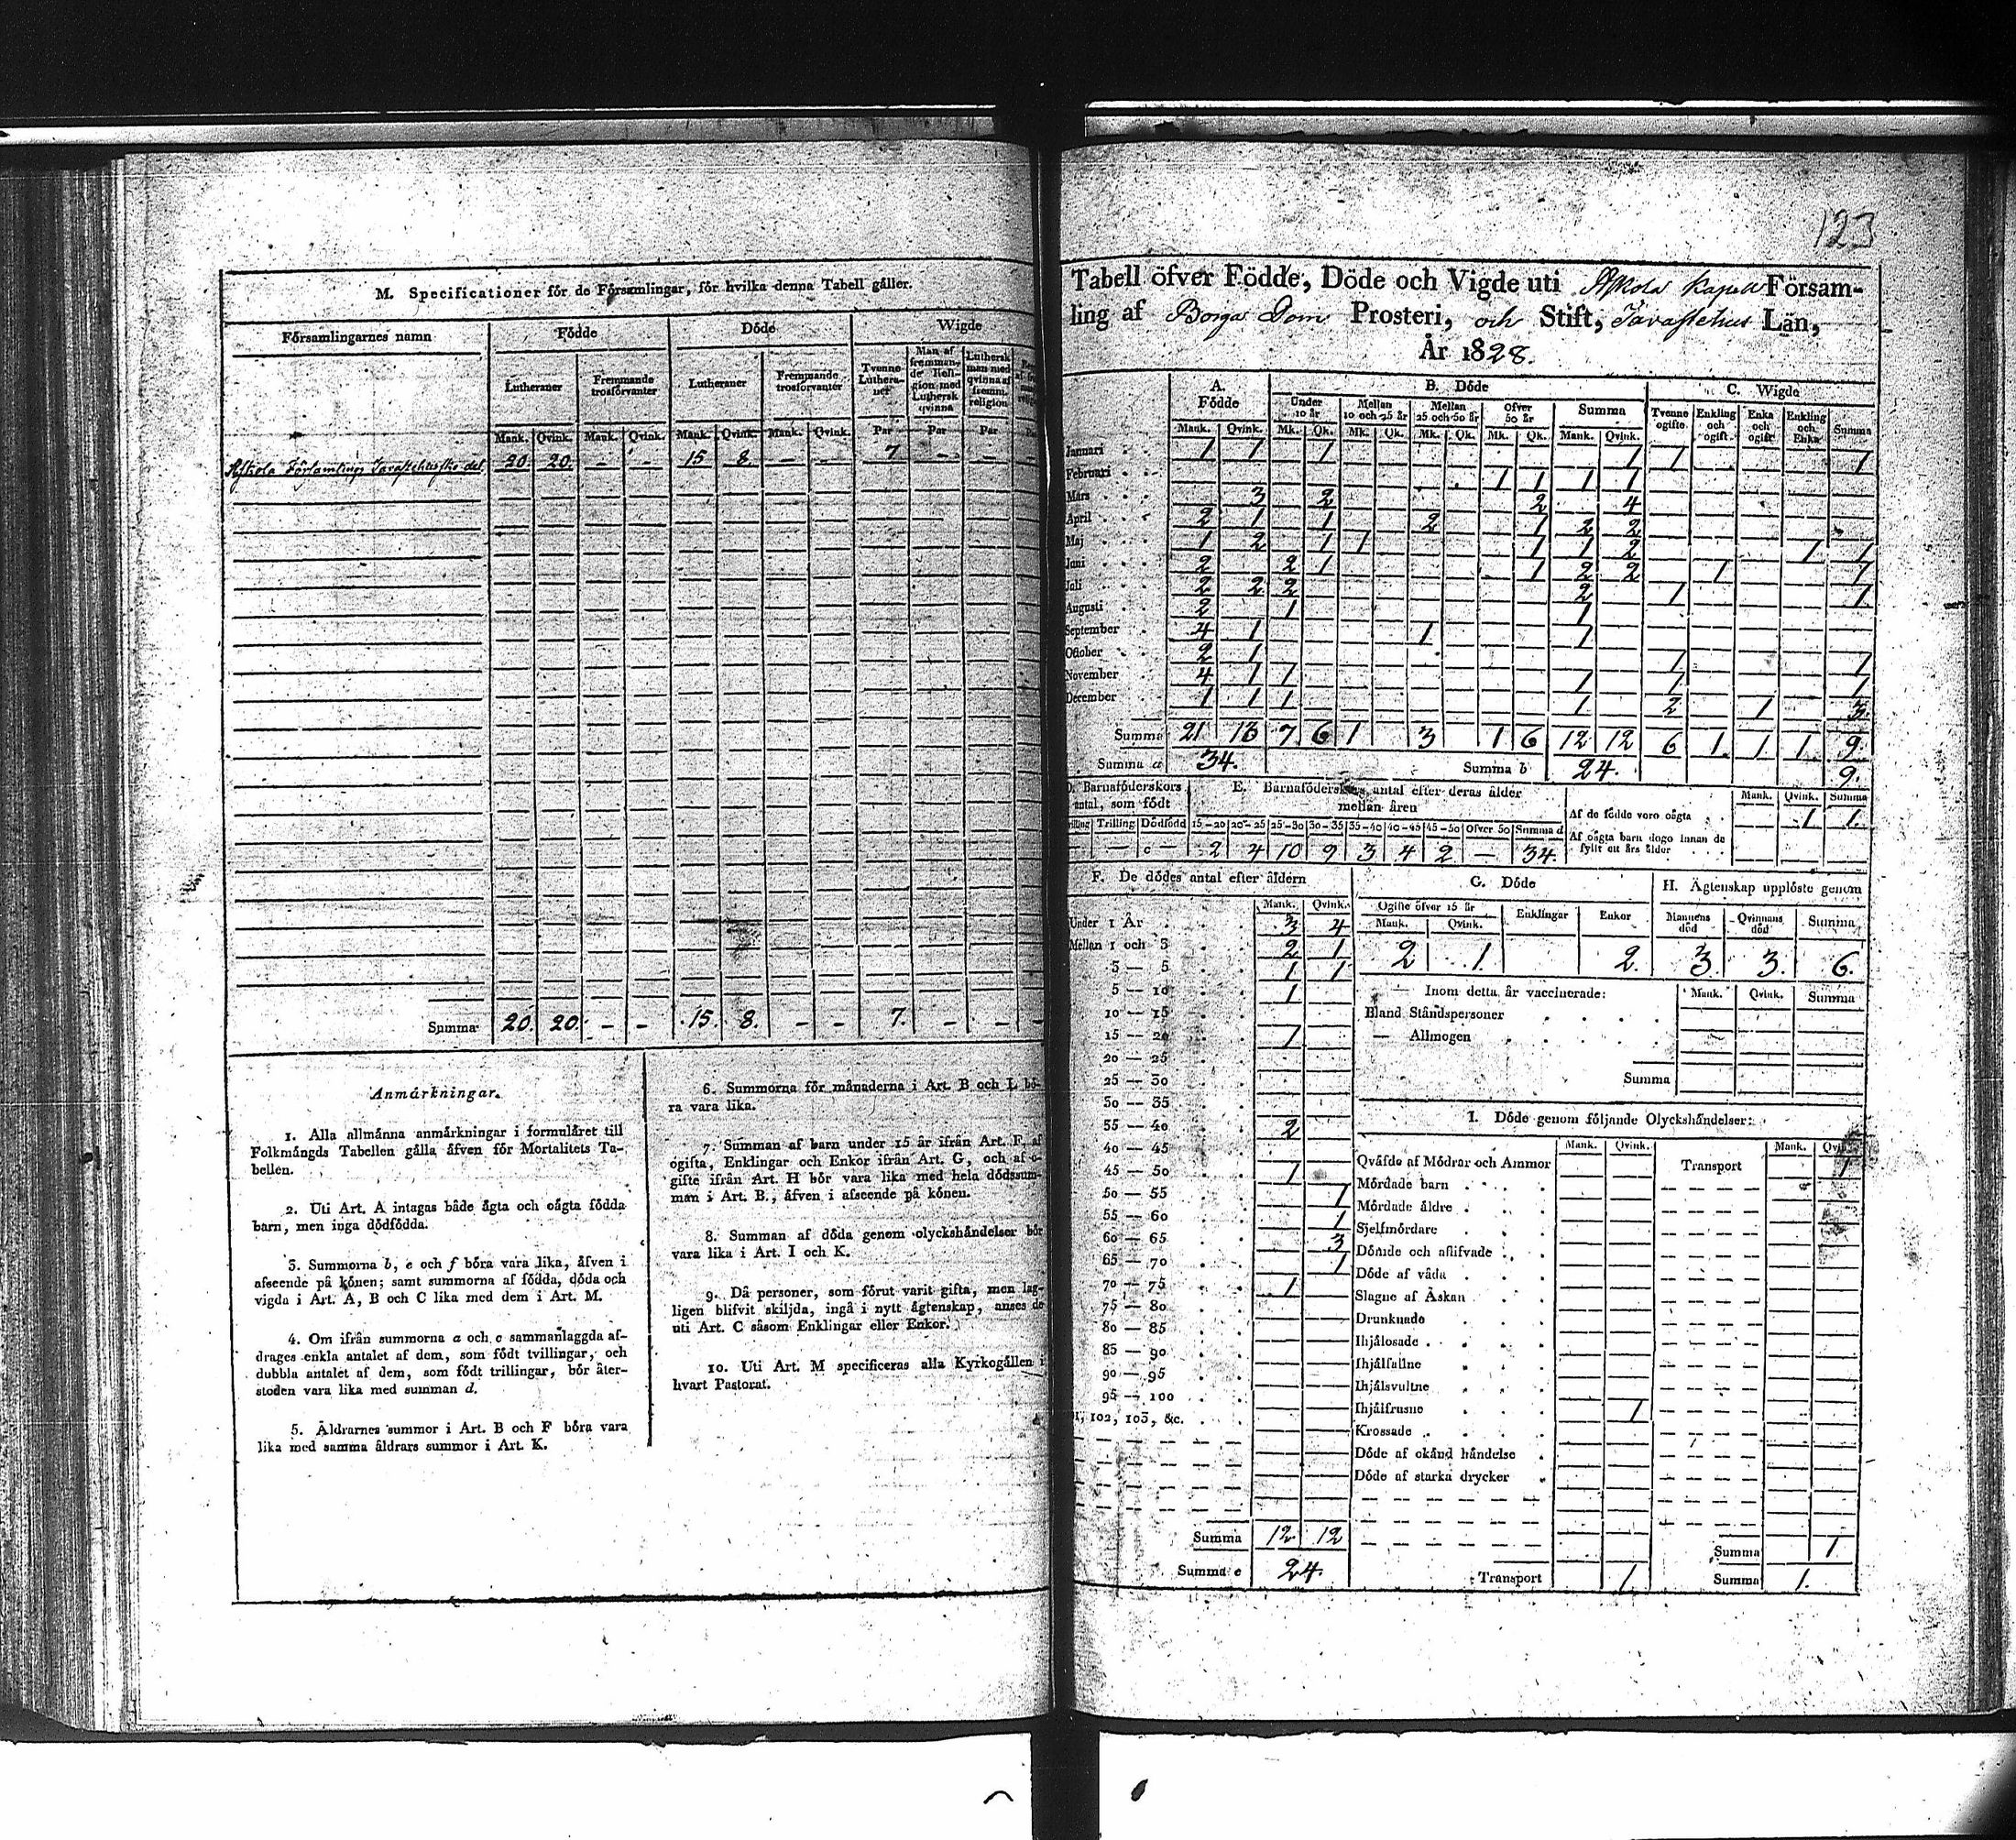 M. Specificationer för de Församlingar, för hvilka denna Tabell gäller.
Församlingarnes namn | Födde | Döde | Wigde
Lutheraner | Fremmande trosförvanter | Lutheraner | Fremmande trosförvanter | Tvenne Lutheraner | Man af fremmande Religion med Luthersk qvinna | Luthersk man med qvinna af fremm. religion
Mank. Qvink. Mank. Qvink. Mank. Qvink. Mank. Qvink. Par Par Par
Askola Församlings Tavastehusske del. 20 20. — — 15 8. — — 7 — —
Summa 20. 20. — — 15. 8. — — 7. — —
Anmärkningar.
1. Alla allmänna anmärkningar i formuläret till
Folkmängds Tabellen gälla äfven för Mortalitets Ta-
bellen.
2. Uti Art. A intagas både ägta och oägta födda
barn, men inga dödfödda.
3. Summorna b, e och f böra vara lika, äfven i
afseende på könen; samt summorna af födda, döda och
vigda i Art. A, B och C lika med dem i Art. M.
4. Om ifrån summorna a och c sammanlaggda af-
drages enkla antalet af dem, som födt tvillingar, och
dubbla antalet af dem, som födt trillingar, bör åter-
stoden vara lika med summan d.
5. Åldrarnes summor i Art. B och F böra vara
lika med samma åldrars summor i Art. K.
6. Summorna för månaderna i Art. B och L bö-
ra vara lika.
7. Summan af barn under 15 år ifrån Art. F, af
ogifta, Enklingar och Enkor ifrån Art. G, och af o-
gifte ifrån Art. H bör vara lika med hela dödssum-
man i Art. B., äfven i afseende på könen.
8. Summan af döda genom olyckshändelser bör
vara lika i Art. I och K.
9. Då personer, som förut varit gifta, men lag-
ligen blifvit skiljda, ingå i nytt ägtenskap, anses de
uti Art. C såsom Enklingar eller Enkor.
10. Uti Art. M specificeras alla Kyrkogällen i
hvart Pastorat.
123
Tabell öfver Födde, Döde och Vigde uti Askola Kapell Försam-
ling af Borgå Dom Prosteri, och Stift, Tavastehus Län,
År 1828.
A. Födde | B. Döde | C. Wigde
Under 10 år | Mellan 10 och 25 år | Mellan 25 och 50 år | Öfver 50 år | Summa | Tvenne ogifte | Enkling och ogift | Enka och ogift | Enkling och Enka | Summa
Mank. Qvink. Mk. Qk. Mk. Qk. Mk. Qk. Mk. Qk. Mank. Qvink.
Januari 1 1 1 1 1 1
Februari 1 1 1 1
Mars 3 2 2 4
April 2 1 1 2 1 2 2
Maj 1 2 1 1 1 1 2 1 1
Juni 2 2 1 1 2 2 1 1
Juli 2 2 2 2 1 1
Augusti 2 1 1
September 4 1 1 1
October 2 1 1 1
November 4 1 1 1 1 1
December 1 1 1 1 2 1 3.
Summa 21 13 7 6 1 3 1 6 12 12 6 1. 1 1. 9.
Summa a 34. Summa b 24. 9.
D. Barnaföderskors antal, som födt
E. Barnaföderskors antal efter deras ålder mellan åren
Trilling Dödfödd 15—20 20—25 25—30 30—35 35—40 40—45 45—50 Öfver 50 Summa d
— c — 2 4 10 9 3 4 2 — 34.
Mank. Qvink. Summa
Af de födde voro oägta 1 1.
Af oägta barn dogo innan de fyllt ett års ålder
F. De dödes antal efter åldern
Mank. Qvink.
Under 1 År 3 4
Mellan 1 och 3 2 1
3 — 5 1 1
5 — 10 1
10 — 15
15 — 20 1
20 — 25
25 — 30
30 — 35
35 — 40 2
40 — 45
45 — 50 1
50 — 55 1
55 — 60 1
60 — 65 3
65 — 70 1
70 — 75 1
75 — 80
80 — 85
85 — 90
90 — 95
95 — 100
102, 103, &c.
Summa 12 12
Summa e 24.
G. Döde
Ogifte öfver 15 år Enklingar Enkor
Mank. Qvink.
2 1. 2.
H. Ägtenskap upplöste genom
Mannens död Qvinnans död Summa
3. 3. 6.
Inom detta år vaccinerade: Mank. Qvink. Summa
Bland Ståndspersoner
— Allmogen
Summa
I. Döde genom följande Olyckshändelser:
Mank. Qvink. Mank. Qvink.
Qväfde af Mödrar och Ammor Transport 1
Mördade barn
Mördade äldre
Sjelfmördare
Dömde och aflifvade
Döde af våda
Slagne af Åskan
Drunknade
Ihjälosade
Ihjälfallne
Ihjälsvultne
Ihjälfrusne 1
Krossade
Döde af okänd händelse
Döde af starka drycker
Summa 1
Transport 1. Summa 1.